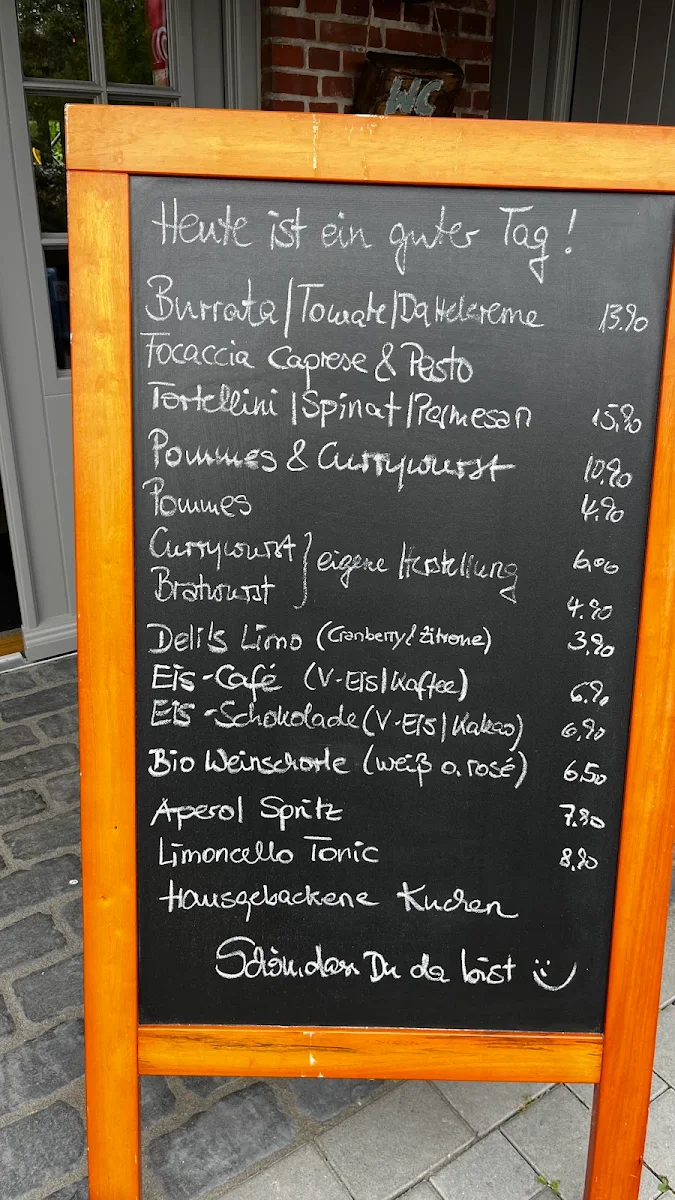 WC
Heute ist ein guter Tag!
Burrata/Tomate/Dattelcreme 13.90
Focaccia Caprese & Pesto
Tortellini/Spinat/Parmesan 15,90
Pommes & Currywurst 10.90
Pommes 4.90
Currywurst } eigene Herstellung 6,00
Bratwurst 4.90
Deli's Limo (Cranberry/Zitrone) 3,90
Eis-Café (V-Eis/Kaffee) 6.90
Eis-Schokolade (V-Eis/Kakao) 6,90
Bio Weinschorle (weiß o. rosé) 6,50
Aperol Spritz 7.90
Limoncello Tonic 8,90
Hausgebackene Kuchen
Schön, dass Du da bist :)